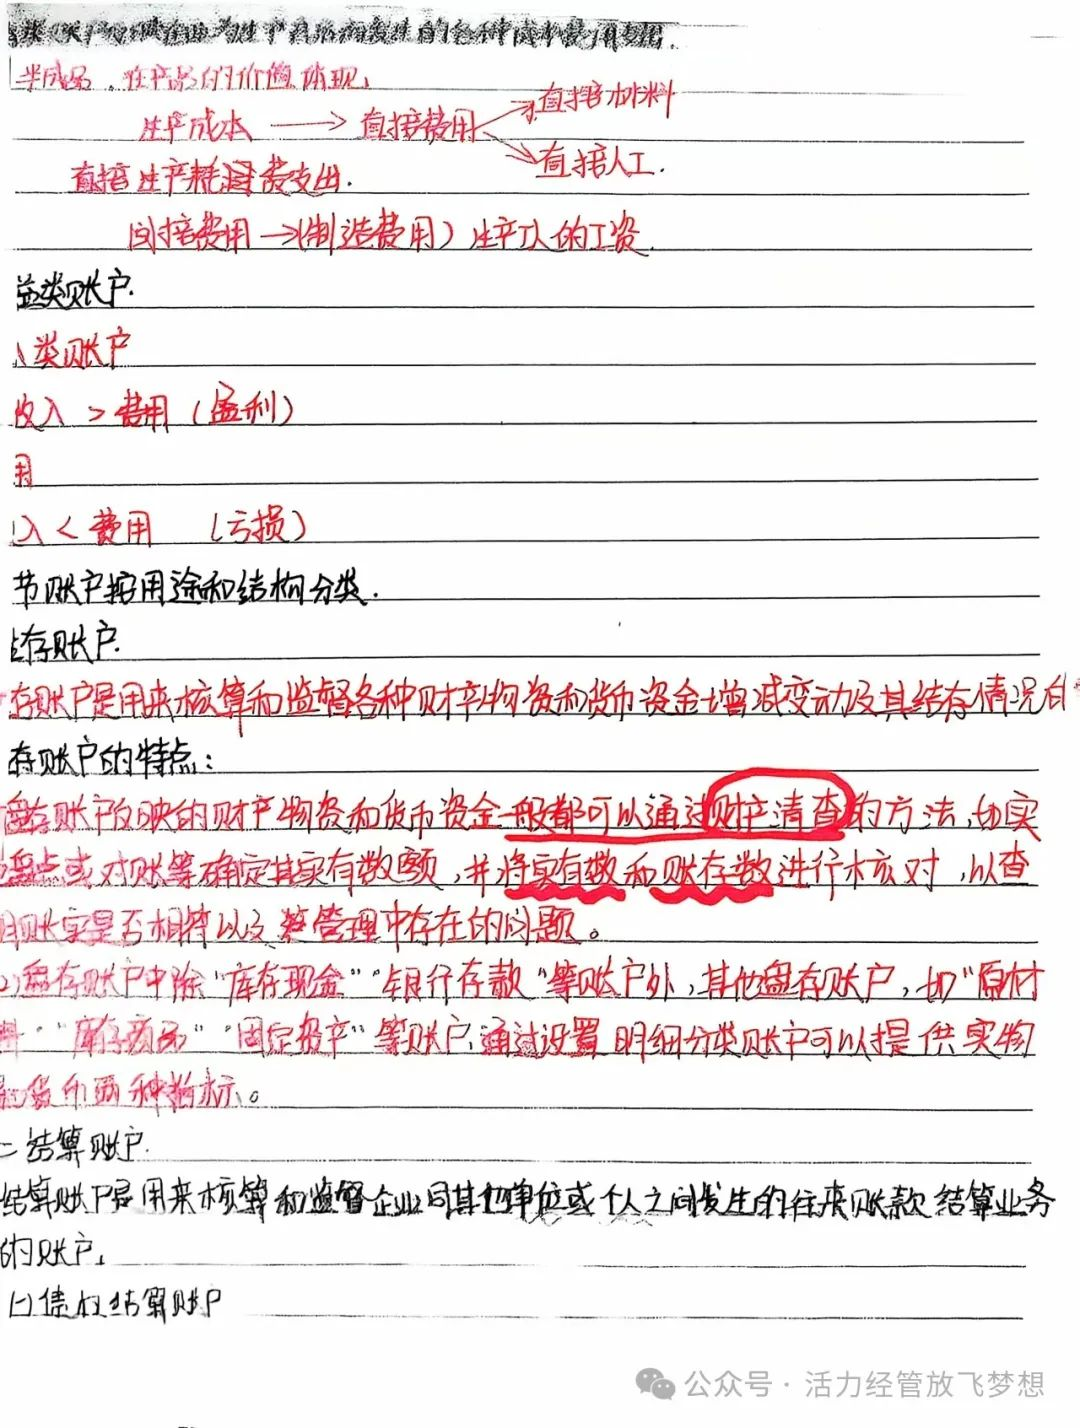 半成品，在产品的价值体现，
生产成本 → 直接费用 直接材料
直接人工.
直接生产耗费支出.
间接费用→(制造费用) 生产工人的工资.
益类账户.
类账户
收入 > 费用 (盈利)
用
入 < 费用 (亏损)
节账户按用途和结构分类.
存账户.
存账户是用来核算和监督各种财产物资和货币资金增减变动及其结存情况
存账户的特点:
盘存账户反映的财产物资和货币资金一般都可以通过财产清查的方法,如实
盘点或对账等确定其实有数额,并将实有数和账存数进行核对,以查
明账实是否相符以及管理中存在的问题。
盘存账户中除"库存现金""银行存款"等账户外,其他盘存账户,如"原材
料""库存商品""固定资产"等账户,通过设置明细分类账户可以提供实物
和货币两种指标。
二 结算账户.
结算账户是用来核算和监督企业同其他单位或个人之间发生的往来账款结算业务
的账户,
(一)债权结算账户
公众号·活力经管放飞梦想